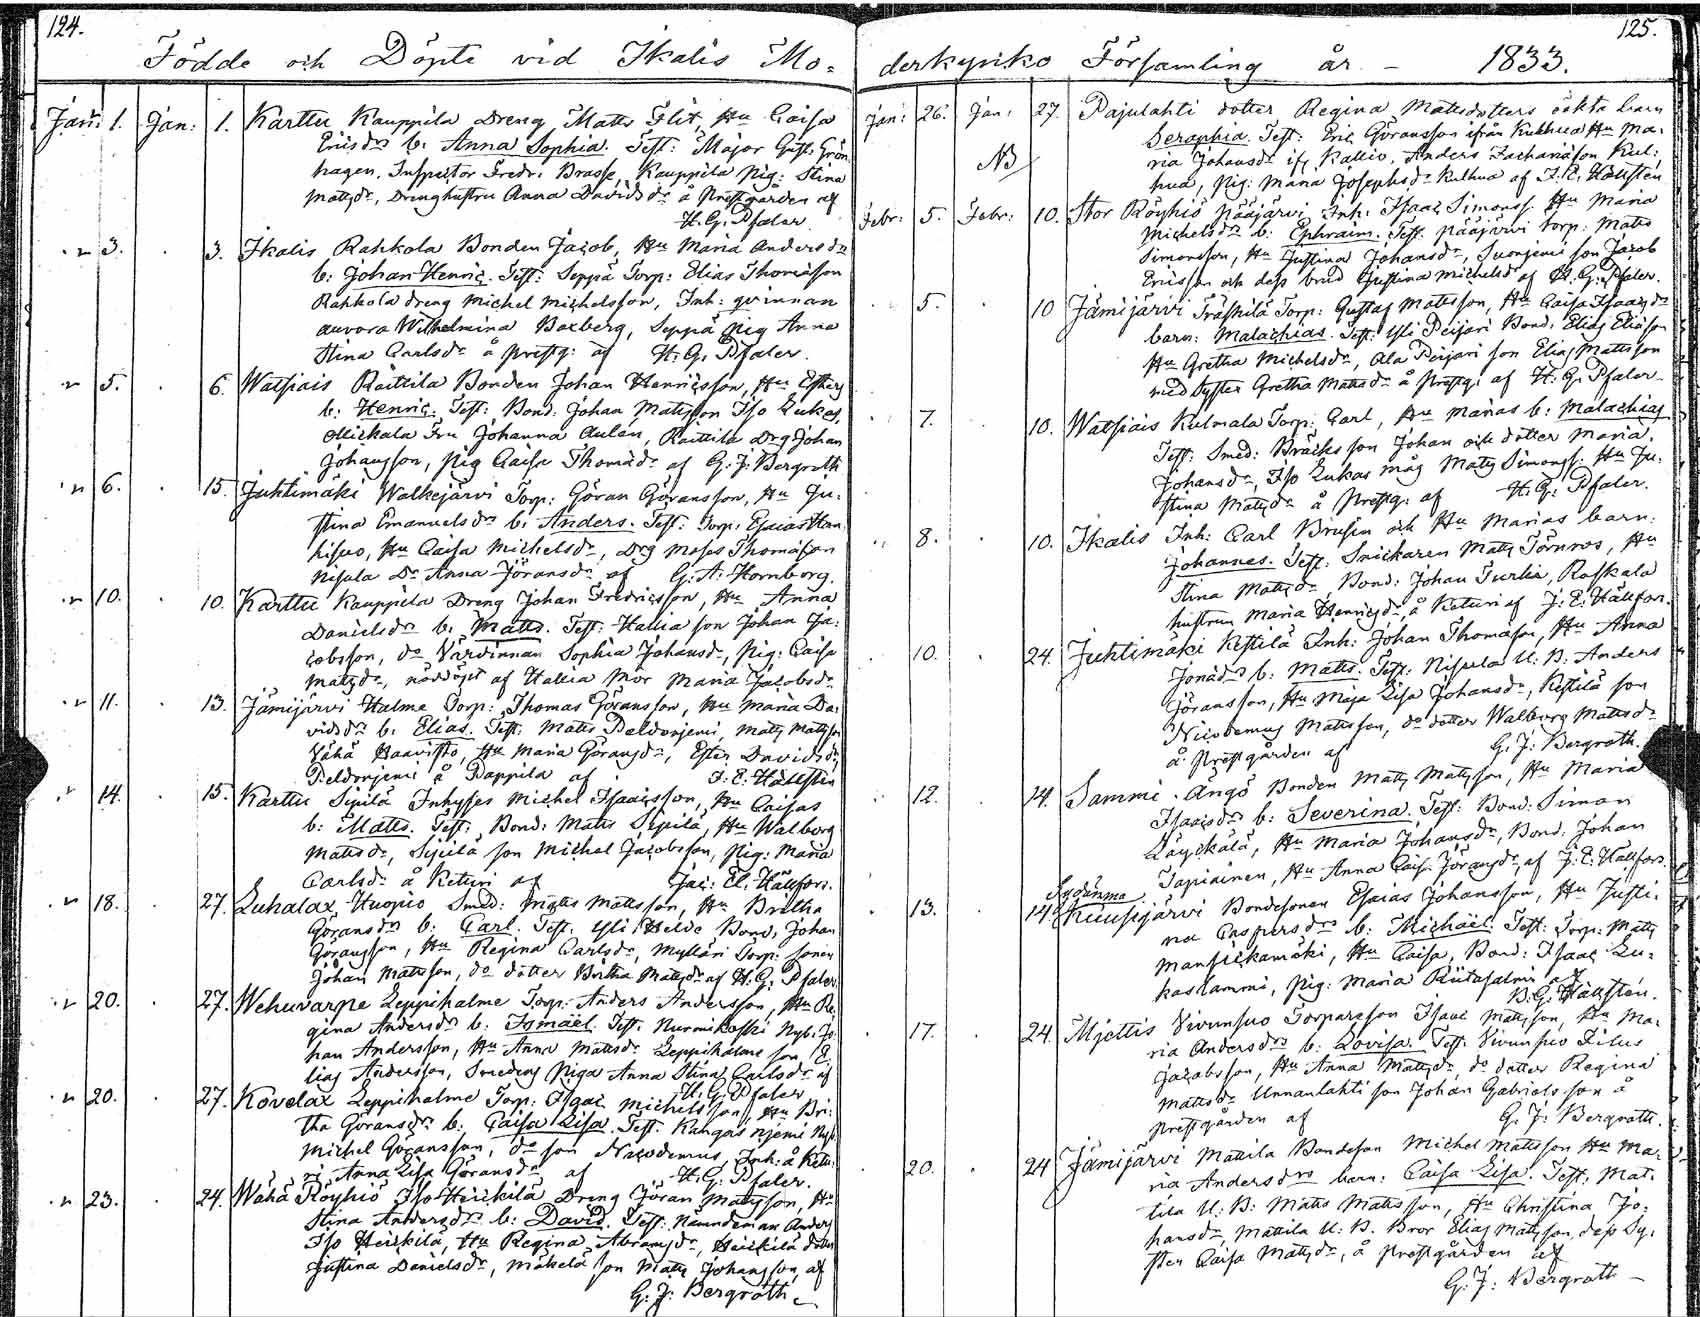 124.
Födde och Döpte vid Ikalis Mo=
Janu: 1. Jan: 1. Karttu Kauppila Dreng Matts Flit, Hu Caisa
Ericsdr b: Anna Sophia. Test: Major Gust: Grön
hagen, Inspector Fredr: Brasse, Kauppila Pig: Stina
Mattsdr, Drenghustru Anna Davidsdr å Prestgården af
H. G. Pfaler.
" 3. 3. Ikalis Rahkola Bonden Jacob, Hu Maria Andersdr
b: Johan Henric. Test: Seppä Torp: Elias Thomasson
Rahkola dreng Michel Michelsson, Inh: qvinnan
Auvora Wilhelmina Boeberg, Seppä Pig Anna
Stina Carlsdr å Prestg: af H. G. Pfaler.
" 5. 6. Watsiais Raittila Bonden Johan Henricsson, Hu Esthers
b: Henric. Test: Bond: Johan Mattsson Iso Lukas,
Mickala Fru Johanna Aulén, Raittila Drg Johan
Johansson, Pig Caisa Thomædr af G. J. Bergroth
" 6. 15. Juhtimäki Walkejärvi Torp: Göran Göransson, Hu Ju:
stina Emanuelsdr b: Anders. Test: Torp: Esaias Han
hisuo, Hu Caisa Michelsdr, Drg Moses Thomasson
Nisula Dr Anna Jöransdr af G. A. Hornborg.
" 10. 10. Karttu Kauppila Dreng Johan Fredricsson, Hu Anna
Danielsdr b: Matts. Test: Hallia son Johan Ja:
cobsson, do Värdinnan Sophia Johansdr, Pig: Caisa
Mattsdr, nöddöpt af Hallia Mor Maria Jacobsdr
" 11. 13. Jämijärvi Halme Torp: Thomas Göransson, Hu Maria Da:
vidsdr b: Elias. Test: Matts Peldonjemi, Matts Mattsson
Vähä Haavisto, Hu Maria Göransdr, Ester Davidsdr
Peldonjemi å Pappila af J. E. Hällsten
" 14. 15. Karttu Sipilä Inhyses Michel Isaacsson, Hu Caisas
b: Matts. Test: Bond: Matts Sipilä, Hu Walborg
Mattsdr, Sipilä son Michel Jacobsson, Pig: Maria
Carlsdr å Keturi af Jac: El: Hällfors.
" 18. 27. Luhalax Huopio Smed: Matts Mattsson, Hu Britha
Göransdr b: Carl. Test: Yli Helde Bond: Johan
Göransson, Hu Regina Carlsdr, Myllari Torp: sonen
Johan Mattsson, do dotter Britha Mattsdr af H. G. Pfaler.
" 20. 27. Wehuvarpe Leppihalme Torp: Anders Andersson, Hu Re
gina Andersdr b: Ismaël. Test: Nurmikoski Nyb: Jo
han Andersson, Hu Anna Mattsdr Leppihalme son E:
lias Andersson, Smedens Piga Anna Stina Carlsdr af
H. G. Pfaler.
" 20. 27. Kovelax Leppihalme Torp: Isaac Michelsson, Hu Bri:
tha Göransdr b: Caisa Lisa. Test: Kangasnjemi Nyb:
Michel Göransson, do son Nicodemus, Inh: å Ketu:
ri Anna Lisa Göransdr af H. G. Pfaler.
" 23. 24. Wähä Röyhiö Iso Heickilä Dreng Göran Mattsson, Hu
Stina Andersdr b: David. Test: Nämndeman Anders
Iso Heickilä, Hu Regina Abramsdr, Heickilä dotter
Justina Danielsdr, Mäkelä son Matts Johansson af
G. J. Bergroth
125.
derkyriko Församling år – 1833.
Jan: 26. Jan: 27. Pajulahti dotter Regina Mattsdotters oäkta barn
NB
Seraphia. Test: Eric Göransson ifrån Kukhua Hu Ma:
ria Johansdr ifr. Kallio, Anders Zachariasson Kul:
hua, Pig: Maria Josephsdr Kulhua af J. E. Hällsten
Febr: 5. Febr: 10. Stor Röyhiö Pääjärvi Inh: Isaac Simonss. Hu Maria
Michelsdr b: Ephraim. Test: Pääjärvi Torp: Matts
Simonsson, Hu Justina Johansdr, Suonjemi son Jacob
Ericsson och dess brud Justina Michelsdr af H. G. Pfaler.
" 5. 10 Jämijärvi Träskilä Torp: Gustaf Mattsson, Hu Caisa Isaacsdr
barn: Malachias. Test: Yli Peijari Bond: Elias Eliasson
Hu Gretha Michelsdr, Ala Peijari son Elias Mattsson
med Syster Gretha Mattsdr å Prestg: af H. G. Pfaler
7. 10. Watsiais Kulmala Torp: Carl, Hu Marias b: Malachias
Test: Smed: Bräcks son Johan och dotter Maria
Johansdr, Iso Lukas måg Matts Simonss. Hu Ju:
stina Mattsdr å Prestg: af H. G. Pfaler.
" 8. 10. Ikalis Inh: Carl Brusin och Hu Marias barn:
Johannes. Test: Snickaren Matts Törnros, Hu
Stina Mattsdr Bond: Johan Turkia, Roskala
hustrun Maria Henricsdr å Keturi af J. E. Hällfors.
10. 24. Juhtimäki Kettilä Inh: Johan Thomasson, Hu Anna
Jonædr b: Matts. Test: Nisula U: B: Anders
Jöransson, Hu Maja Lisa Johansdr, Kettilä son
Nicodemus Mattsson, do dotter Walborg Mattsdr
å Prestgården af G. J. Bergroth.
12. 14. Sammi Ängö Bonden Matts Mattsson, Hu Maria
Isaacsdr b: Severina. Test: Bond: Simon
Läyckälä, Hu Maria Johansdr, Bond: Johan
Tapiainen, Hu Anna Caisa Jöransdr, af J. E. Hällfors.
Sydänma
13. 14. Kuusijärvi Bondesonen Esaias Johansson, Hu Justi:
na Caspersdr b: Michaël. Test: Torp: Matts
Mansickamäki, Hu Caisa, Bond: Isaac Lu:
kaslammi, Pig: Maria Riitasalmi af
B. G. Hällstén.
17. 24. Mjettis Vivunsuo Torpareson Isaac Mattsson, Hu Ma:
ria Andersdrs b: Lovisa. Test: Vivunsuo Titus
Jacobsson, Hu Anna Mattsdr, do dotter Regina
Mattsdr Unnanlahti son Johan Gabrielsson å
Prestgården af G. J. Bergroth.
20. 24 Jämijärvi Mattila Bondeson Michel Mattsson Hu Ma:
ria Andersdrs barn: Caisa Lisa. Test: Mat:
tila U: B: Matts Mattsson, Hu Christina Jo:
hansdr, Mattila U: B. Bror Elias Mattsson, dess Sy:
ster Caisa Mattsdr, å Prestgården af
G. J: Bergroth